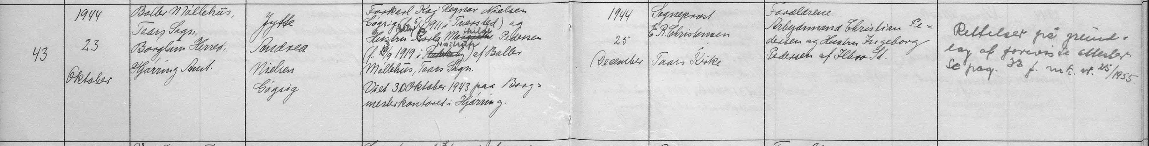 43
1944
23
Oktober
Balles Møllehus,
Taars Sogn.
Borglum Herred.
Hjørring Amt.
Jytte
Andrea
Nielsen
Gøgsig
Forkarl Kaj Regnar Nielsen
Gøgsig (f. 1911 i Taars) og
Hustru Pedersen
(f. 1919 i ) af Balles
Møllehus, Taars Sogn.
Viet 30 Oktober 1943 paa Borg-
mesterkontoret i Hjørring.
1944
25
December
Sogneprest
E. R. Christensen
Taars Kirke
Forældrene
Arbejdsmand Christian Pe-
dersen og Hustru Ingeborg
Pedersen af
Rettelser på grund-
lag af foreviste attester
Se pag. 33 f. nr. 25/1955